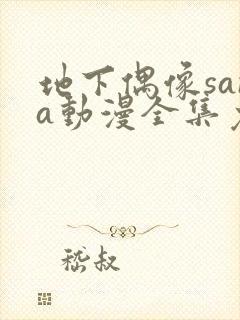 地下偶像sa
a動漫全集
嵇叔